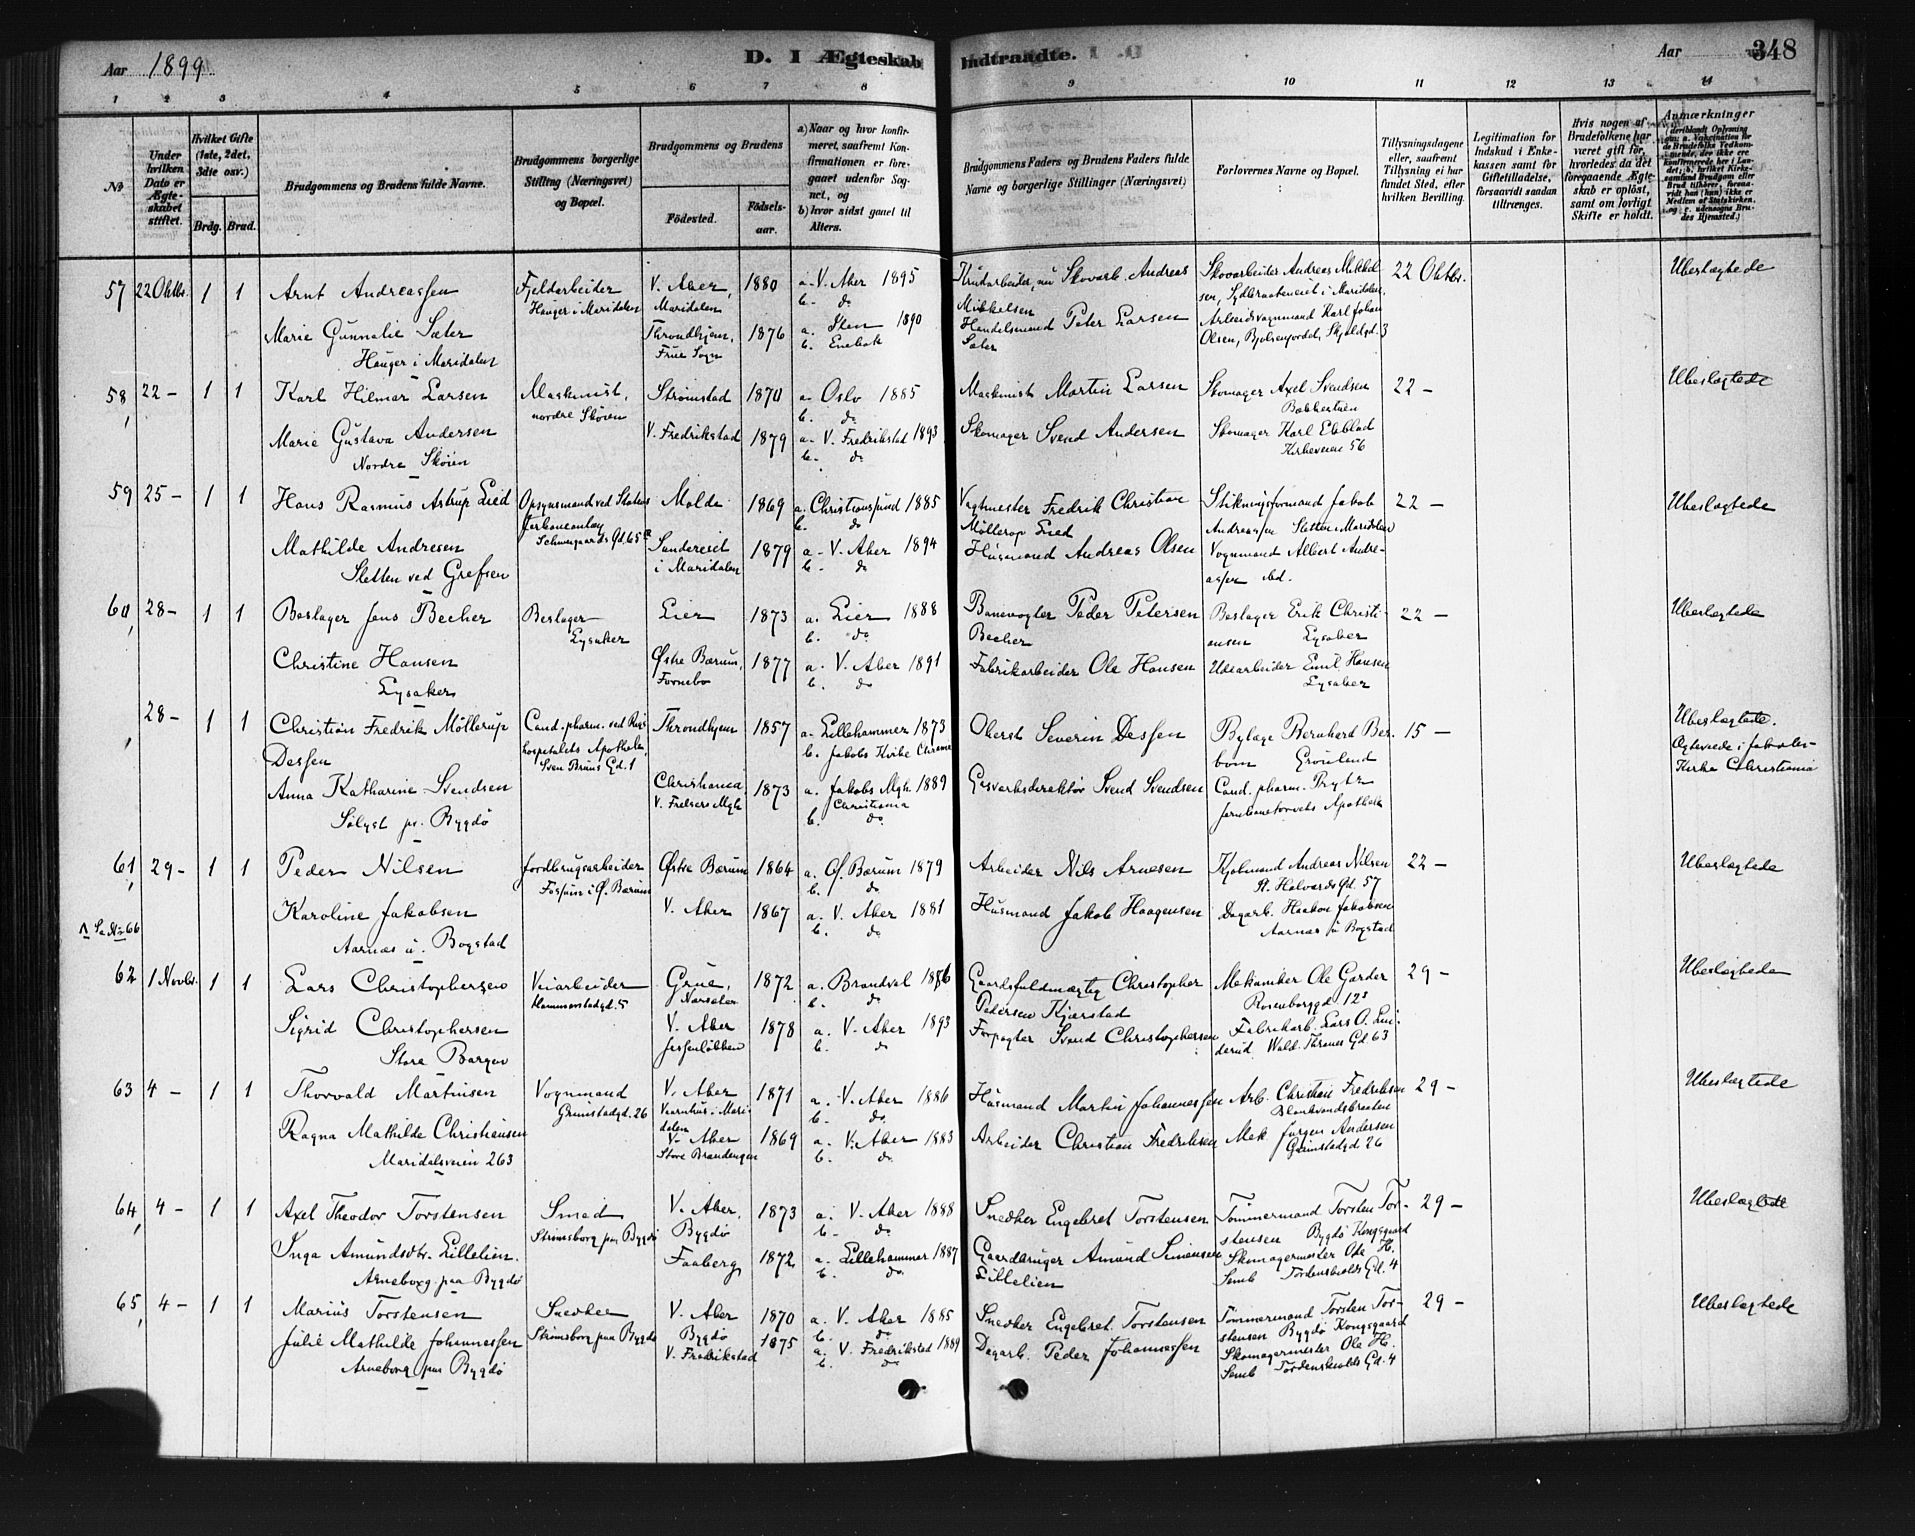 Aar 1899
D. I Ægteskab Indtraadte.
Aar 348
1 2 3 4 5 6 7 8 9 10 11 12 13 14
No
Under hvilken Dato er Ægteskabet stiftet.
Hvilket Gifte (1ste, 2det, 3die osv.)
Brdg. Brud.
Brudgommens og Brudens fulde Navne.
Brudgommens borgerlige Stilling (Næringsvei) og Bopæl.
Brudgommens og Brudens
Födested.
Födsels-aar.
a) Naar og hvor konfirmeret, saafremt Konfirmationen er foregaaet udenfor Sognet, og
b) hvor sidst gaaet til Alters.
Brudgommens Faders og Brudens Faders fulde Navne og borgerlige Stillinger (Næringsvei)
Forlovernes Navne og Bopæl.
Tillysningsdagene eller, saafremt Tillysning ei har fundet Sted, efter hvilken Bevilling.
Legitimation for Indskud i Enkekassen samt for Giftetilladelse, forsaavidt saadan tiltrænges.
Hvis nogen af Brudefolkene har været gift för, hvorledes da det foregaaende Ægteskab er oplöst, samt om lovligt Skifte er holdt.
Anmærkninger
57 22 Oktbr. 1 1 Arnt Andreassen Fjeldarbeider V. Aker, 1880 a. V. Aker 1895 Skovarb. Andreas Skovarbeider Andreas Mikkel- 22 Oktbr. Ubeslægtede
Hauger i Maridalen Maridalen b. do Mikkelsen sen, i Maridalen,
Marie Gunnalie Sæter Throndhjem, 1876 a. 1890 Handelsmand Peter Larsen Arbeidsvognmand Karl Johan
Hauger i Maridalen Frue Sogn b. Enebak Sæter Olsen, Skjoldgd. 3
58, 22 - 1 1 Karl Hilmar Larsen Maskinist, Strömstad 1870 a. Oslo 1885 Maskinist Martin Larsen Skomager Axel Svendsen 22 - Ubeslægtede
nordre Skøien b. do
Marie Gustava Andersen V. Fredrikstad 1879 a. V. Fredrikstad 1893 Skomager Svend Andersen Skomager Karl Ekblad
Nordre Skøien b. do Kirkeveien 56
59 25 - 1 1 Hans Rasmus Astrup Lied Opsynsmand ved Statens Molde 1869 a. Christiansund 1885 Vagtmester Fredrik Christian Stikningsformand Jakob 22 - Ubeslægtede
Jerbaneanlæg Schweigaards Gd. 65 b. do Möllerop Lied Andreassen Sletten i Maridalen
Mathilde Andresen 1879 a. V. Aker 1894 Husmand Andreas Olsen Vognmand Albert Andre-
Sletten ved Grefsen i Maridalen b. do assen ibd.
60, 28 - 1 1 Beslager Jens Becher Beslager Lier 1873 a. Lier 1888 Banevogter Peder Petersen Beslager Erik Christi- 22 - Ubeslægtede
Lysaker b. do Becher ansen Lysaker
Christine Hansen Østre Bærum, 1877 a. V. Aker 1891 Fabrikarbeider Ole Hansen Udearbeider Emil Hansen
Lysaker Fornebo b. do Lysaker
28 - 1 1 Christian Fredrik Möllerup Cand. pharm. ved Rigs- Throndhjem 1857 a. Lillehammer 1873 Oberst Severin Dessen Bylæge Bernhard Ber- 15 - Ubeslægtede.
Dessen hospitalets Apothek, b. Jakobs Kirke bom Grönland Ægteviede i Jakobs-
Sven Bruns Gd. 1 Kirke Christiania
Anna Katharine Svendsen Christiania 1873 a. Jakobs Mgh 1889 Gasværksdirektör Svend Svendsen Cand. pharm.
Sölyst pr. Bygdø V. Frelsers Mgh Christiania b. do Jernbanetorvets Apothek
61, 29 - 1 1 Peder Nilsen Jordbrugsarbeider Østre Bærum 1864 a. Ø. Bærum 1879 Arbeider Nils Arnesen Kjøbmand Andreas Nilsen 22 - Ubeslægtede
Fossum i Ø. Bærum b. do St. Halvards Gd. 57
Karoline Jakobsen V. Aker 1867 a. V. Aker 1881 Husmand Jakob Haagensen Dagarb. Haakon Jakobsen
Λ Se Nr 66
Aarnæs u. Bogstad b. do Aarnæs u Bogstad
62 1 Novbr. 1 1 Lars Christophersen Veiarbeider Grue, 1872 a. Brandval 1886 Gaardsfuldmægtig Christopher Mekaniker Ole Garder 29 - Ubeslægtede
Hammerstadgd. 5 b. do Pedersen Kjærstad Rosenborggd. 12
Sigrid Christophersen V. Aker 1878 a. V. Aker 1893 Forpagter Svend Christophersen Fabrikarb. Lars O. Lin-
Store Bargen b. do derud Wald. Thranes Gd. 63
63 4 - 1 1 Thorvald Martinsen Vognmand V. Aker 1871 a. V. Aker 1886 Husmand Martin Johannessen Arb. Christian Fredriksen 29 - Ubeslægtede
Grimstadgd. 26 i Mari- dalen b. do Blankvandsbraaten
Ragna Mathilde Christiansen V. Aker 1869 a. V. Aker 1883 Arbeider Christian Fredriksen Mek. Jørgen Andersen
Maridalsveien 263 Store Brandengen b. do Grimstadgd 26
64, 4 - 1 1 Axel Theodor Torstensen Smed V. Aker, 1873 a. V. Aker 1888 Snedker Engebret Torstensen Tömmermand Torsten Tor- 29 - Ubeslægtede
Strömsborg paa Bygdø Bygdø b. do stensen Bygdø Kongsgaard
Inga Amundsdtr. Lillelien. Faaberg 1872 a. Lillehammer 1887 Gaardbruger Amund Simensen Skomagermester Ole H.
Arneborg paa Bygdø b. do Lillelien Semb Tordenskiolds Gd. 4
65, 4 - 1 1 Marius Torstensen Snedker V. Aker 1870 a. V. Aker 1885 Snedker Engebret Torstensen Tömmermand Torsten Tor- 29 - Ubeslægtede
Strömsborg paa Bygdø Bygdø b. do stensen Bygdø Kongsgaard
Julie Mathilde Johannessen V. Fredrikstad 1875 a. V. Fredrikstad 1889 Dagarb. Peder Johannessen Skomagermester Ole H.
Arneborg paa Bygdø b. do Semb Tordenskiolds Gd. 4